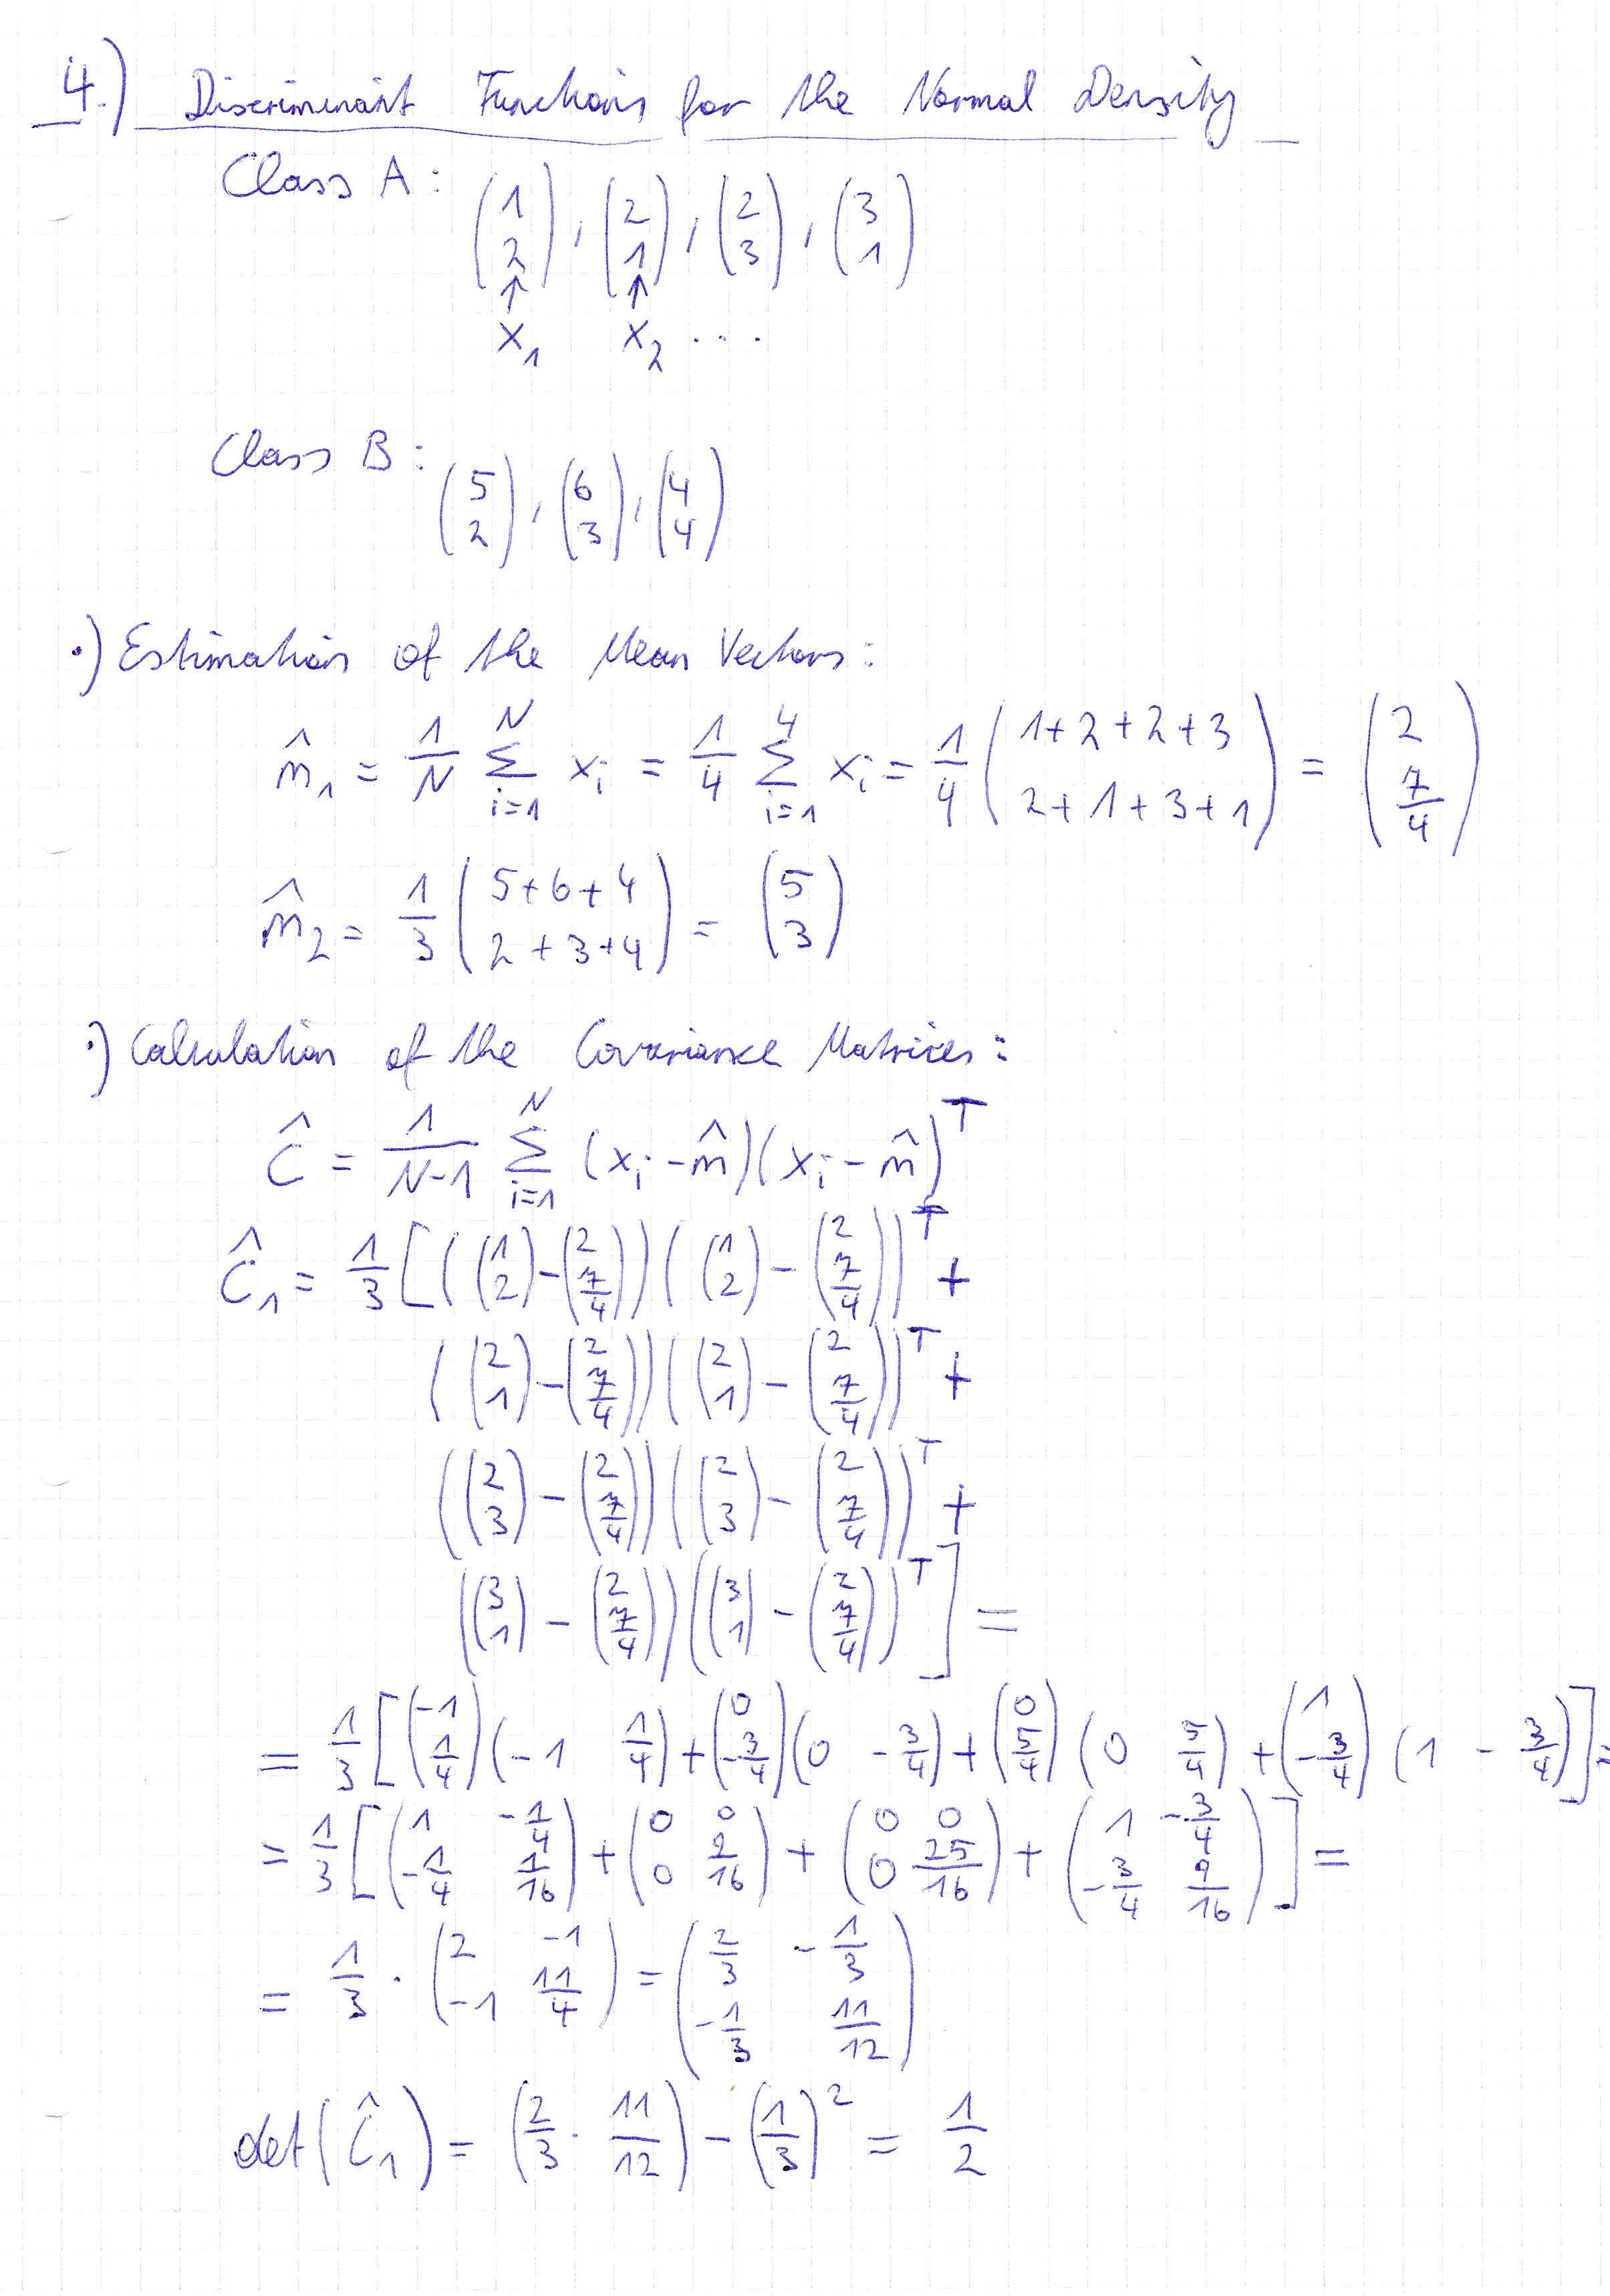 4.) Discriminant Functions for the Normal Density
Class A: (1 2), (2 1), (2 3), (3 1)
↑ ↑
x₁ x₂ ...
Class B: (5 2), (6 3), (4 4)
•) Estimation of the Mean Vectors:
m̂₁ = 1/N ∑_{i=1}^{N} xᵢ = 1/4 ∑_{i=1}^{4} xᵢ = 1/4 (1+2+2+3 2+1+3+1) = (2 7/4)
m̂₂ = 1/3 (5+6+4 2+3+4) = (5 3)
•) Calculation of the Covariance Matrices:
Ĉ = 1/(N-1) ∑_{i=1}^{N} (xᵢ - m̂)(xᵢ - m̂)^T
Ĉ₁ = 1/3 [((1 2) - (2 7/4))((1 2) - (2 7/4))^T +
((2 1) - (2 7/4))((2 1) - (2 7/4))^T +
((2 3) - (2 7/4))((2 3) - (2 7/4))^T +
((3 1) - (2 7/4))((3 1) - (2 7/4))^T] =
= 1/3 [(-1 1/4)(-1 1/4) + (0 -3/4)(0 -3/4) + (0 5/4)(0 5/4) + (1 -3/4)(1 -3/4)] =
= 1/3 [(1 -1/4 -1/4 1/16) + (0 0 0 9/16) + (0 0 0 25/16) + (1 -3/4 -3/4 9/16)] =
= 1/3 · (2 -1 -1 11/4) = (2/3 -1/3 -1/3 11/12)
det(Ĉ₁) = (2/3 · 11/12) - (1/3)² = 1/2